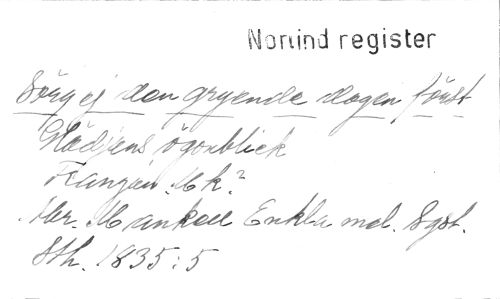 Norlind register
Sörj ej den gryende dagen förut
Glädjens ögonblick
Franzén. Mk.?
Abr. Mankell Enkla mel. 8 gst.
Sth. 1835:5